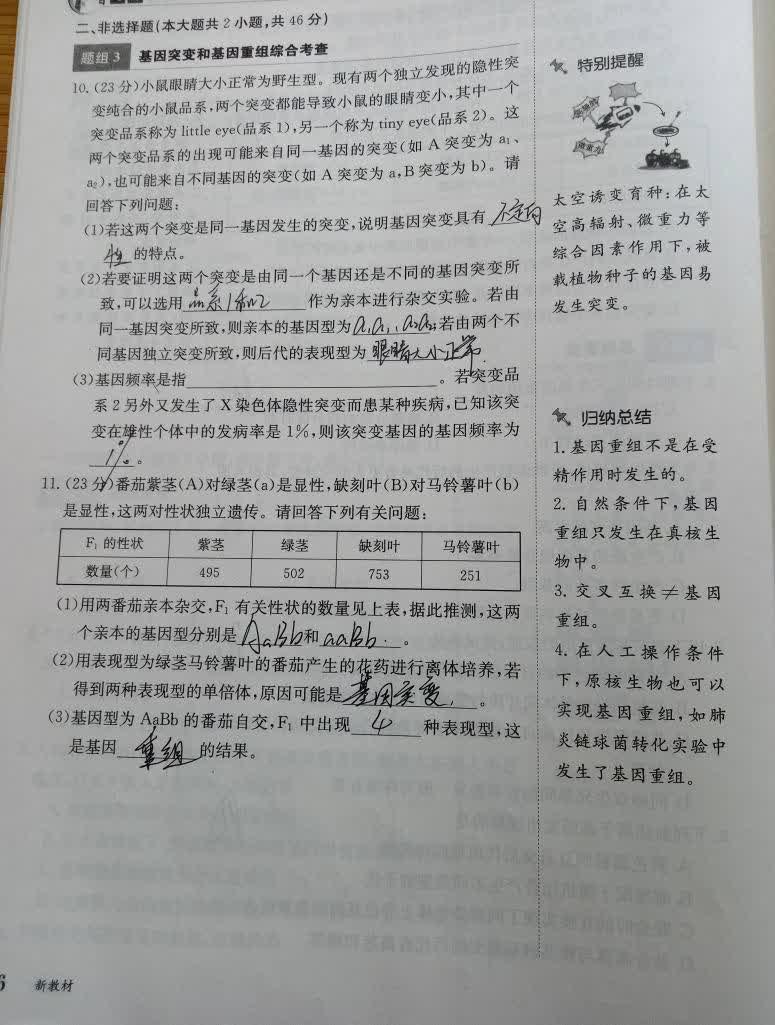 二、非选择题(本大题共 2 小题,共 46 分)
题组 3 基因突变和基因重组综合考查
10. (23 分)小鼠眼睛大小正常为野生型。现有两个独立发现的隐性突
变纯合的小鼠品系,两个突变都能导致小鼠的眼睛变小,其中一个
突变品系称为 little eye(品系 1),另一个称为 tiny eye(品系 2)。这
两个突变品系的出现可能来自同一基因的突变(如 A 突变为 a₁、
a₂),也可能来自不同基因的突变(如 A 突变为 a,B 突变为 b)。请
回答下列问题:
(1)若这两个突变是同一基因发生的突变,说明基因突变具有 不定向
性 的特点。
(2)若要证明这两个突变是由同一个基因还是不同的基因突变所
致,可以选用 品系1和2 作为亲本进行杂交实验。若由
同一基因突变所致,则亲本的基因型为 a₁a₁,a₂a₂;若由两个不
同基因独立突变所致,则后代的表现型为 眼睛大小正常.
(3)基因频率是指 。若突变品
系 2 另外又发生了 X 染色体隐性突变而患某种疾病,已知该突
变在雄性个体中的发病率是 1%,则该突变基因的基因频率为
1% 。
11. (23 分)番茄紫茎(A)对绿茎(a)是显性,缺刻叶(B)对马铃薯叶(b)
是显性,这两对性状独立遗传。请回答下列有关问题:
F₁ 的性状 紫茎 绿茎 缺刻叶 马铃薯叶
数量(个) 495 502 753 251
(1)用两番茄亲本杂交,F₁ 有关性状的数量见上表,据此推测,这两
个亲本的基因型分别是 AaBb 和 aaBb 。
(2)用表现型为绿茎马铃薯叶的番茄产生的花药进行离体培养,若
得到两种表现型的单倍体,原因可能是 基因突变 。
(3)基因型为 AaBb 的番茄自交,F₁ 中出现 4 种表现型,这
是基因 重组 的结果。
特别提醒
微重力
太空诱变育种:在太
空高辐射、微重力等
综合因素作用下,被
载植物种子的基因易
发生突变。
归纳总结
1. 基因重组不是在受
精作用时发生的。
2. 自然条件下,基因
重组只发生在真核生
物中。
3. 交叉互换≠基因
重组。
4. 在人工操作条件
下,原核生物也可以
实现基因重组,如肺
炎链球菌转化实验中
发生了基因重组。
6 新教材